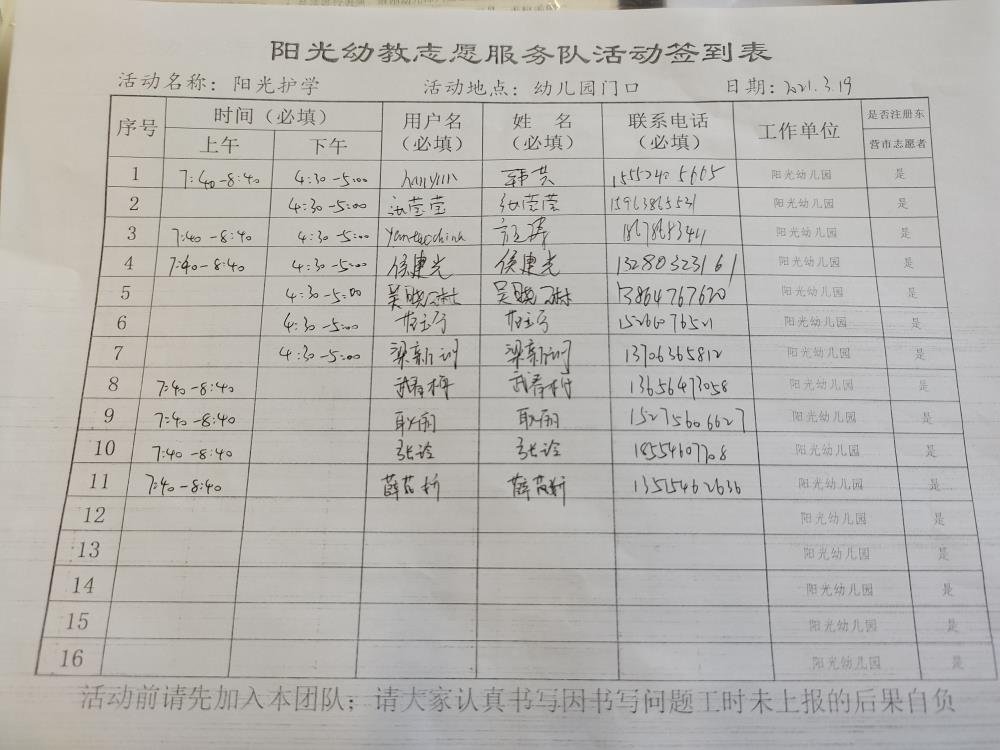 阳光幼教志愿服务队活动签到表
活动名称：阳光护学 活动地点：幼儿园门口 日期：2021.3.19
序号 时间（必填） 上午 下午 用户名（必填） 姓名（必填） 联系电话（必填） 工作单位 是否注册东营市志愿者
1 7:40-8:40 4:30-5:00 阳光幼儿园 是
2 4:30-5:00 张莹莹 张莹莹 15963865531 阳光幼儿园 是
3 7:40-8:40 4:30-5:00 阳光幼儿园 是
4 7:40-8:40 4:30-5:00 侯建光 侯建光 13280323161 阳光幼儿园 是
5 4:30-5:00 13864767620 阳光幼儿园 是
6 4:30-5:00 15266076521 阳光幼儿园 是
7 4:30-5:00 梁新训 梁新训 13706365812 阳光幼儿园 是
8 7:40-8:40 武春梅 武春梅 13656473058 阳光幼儿园 是
9 7:40-8:40 耿丽 耿丽 15275606627 阳光幼儿园 是
10 7:40-8:40 张玲 张玲 18554607708 阳光幼儿园 是
11 7:40-8:40 13515462636 阳光幼儿园 是
12 阳光幼儿园 是
13 阳光幼儿园 是
14 阳光幼儿园 是
15 阳光幼儿园 是
16 阳光幼儿园 是
活动前请先加入本团队；请大家认真书写因书写问题工时未上报的后果自负